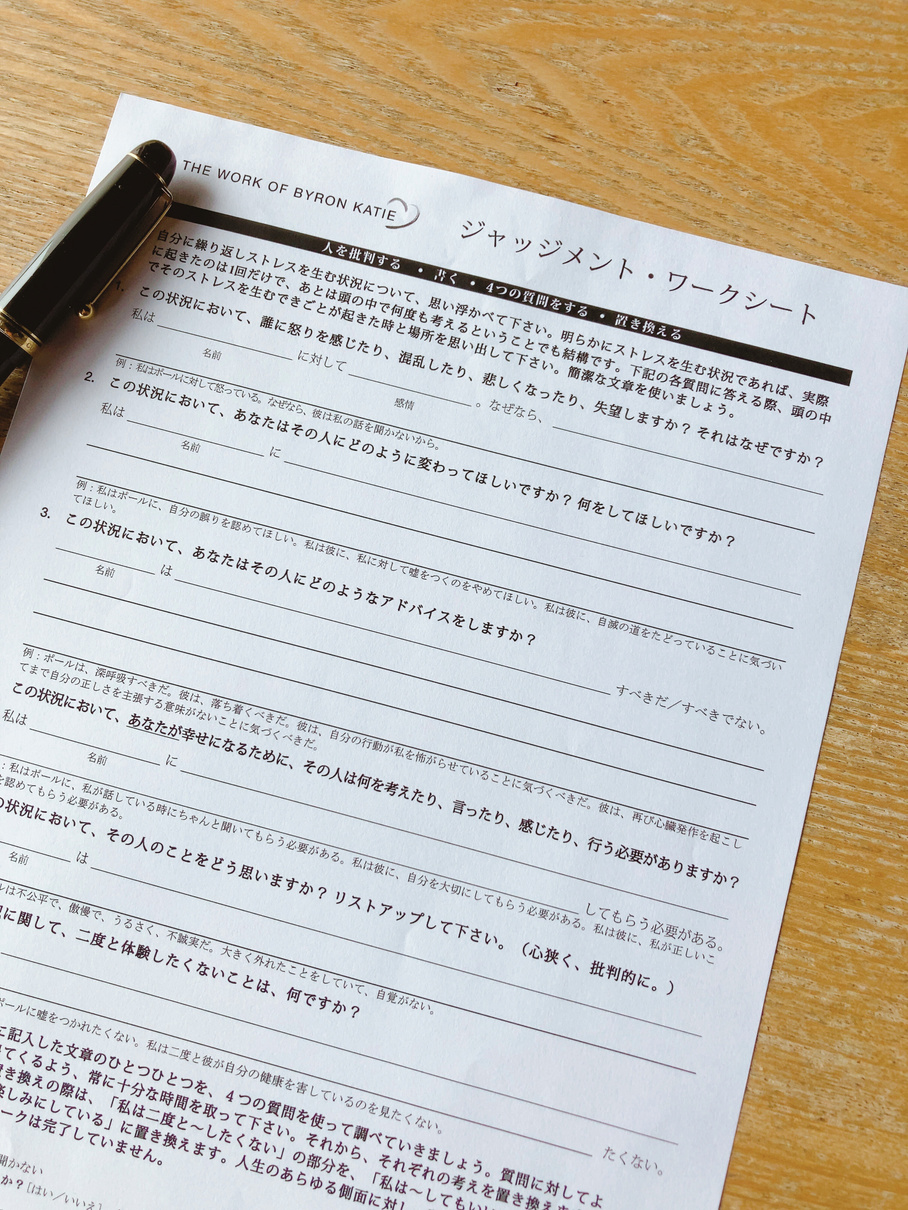 THE WORK OF BYRON KATIE
ジャッジメント・ワークシート
人を批判する ・ 書く ・ 4つの質問をする ・ 置き換える
自分に繰り返しストレスを生む状況について、思い浮かべて下さい。明らかにストレスを生む状況であれば、実際
に起きたのは1回だけで、あとは頭の中で何度も考えるということでも結構です。下記の各質問に答える際、頭の中
でそのストレスを生むできごとが起きた時と場所を思い出して下さい。簡潔な文章を使いましょう。
1. この状況において、誰に怒りを感じたり、混乱したり、悲しくなったり、失望しますか? それはなぜですか?
私は に対して 。なぜなら、
名前 感情
例:私はポールに対して怒っている。なぜなら、彼は私の話を聞かないから。
2. この状況において、あなたはその人にどのように変わってほしいですか? 何をしてほしいですか?
私は に
名前
例:私はポールに、自分の誤りを認めてほしい。私は彼に、私に対して嘘をつくのをやめてほしい。私は彼に、自滅の道をたどっていることに気づい
てほしい。
3. この状況において、あなたはその人にどのようなアドバイスをしますか?
は
名前
すべきだ/すべきでない。
例:ポールは、深呼吸すべきだ。彼は、落ち着くべきだ。彼は、自分の行動が私を怖がらせていることに気づくべきだ。彼は、再び心臓発作を起こし
てまで自分の正しさを主張する意味がないことに気づくべきだ。
この状況において、あなたが幸せになるために、その人は何を考えたり、言ったり、感じたり、行う必要がありますか?
私は に
名前
してもらう必要がある。
:私はポールに、私が話している時にちゃんと聞いてもらう必要がある。私は彼に、自分を大切にしてもらう必要がある。私は彼に、私が正しいこ
を認めてもらう必要がある。
の状況において、その人のことをどう思いますか? リストアップして下さい。(心狭く、批判的に。)
は
名前
ルは不公平で、傲慢で、うるさく、不誠実だ。大きく外れたことをしていて、自覚がない。
に関して、二度と体験したくないことは、何ですか?
たくない。
ポールに嘘をつかれたくない。私は二度と彼が自分の健康を害しているのを見たくない。
に記入した文章のひとつひとつを、4つの質問を使って調べていきましょう。質問に対してよ
てくるよう、常に十分な時間を取って下さい。それから、それぞれの考えを置き換え
置き換えの際は、「私は二度と〜したくない」の部分を、「私は〜してもい
楽しみにしている」に置き換えます。人生のあらゆる側面に対し
ワークは完了していません。
聞かない
か? [はい/いいえ]